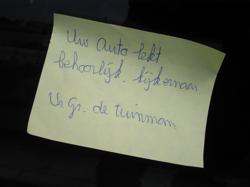 Uw auto lekt
behoorlijk. kijk ernaar.
Vr Gr. de tuinman